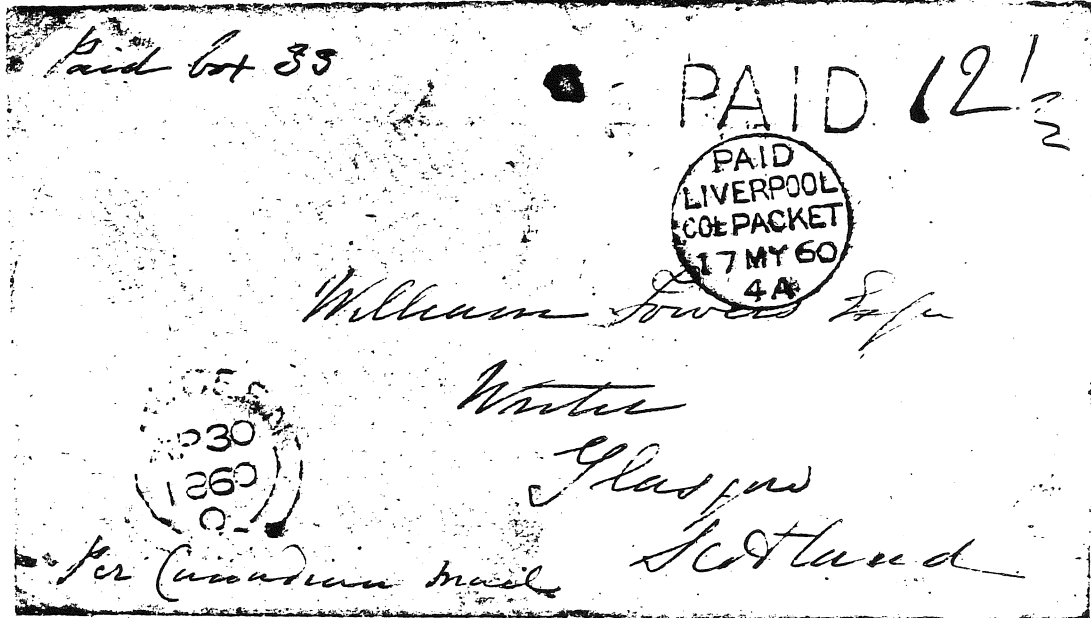 Paid box 33
PAID 12 1/2
PAID
LIVERPOOL
COL PACKET
17 MY 60
4A
William Towers Esqr
Writer
Glasgow
Scotland
AP 30
1860
Per Canadian Mail